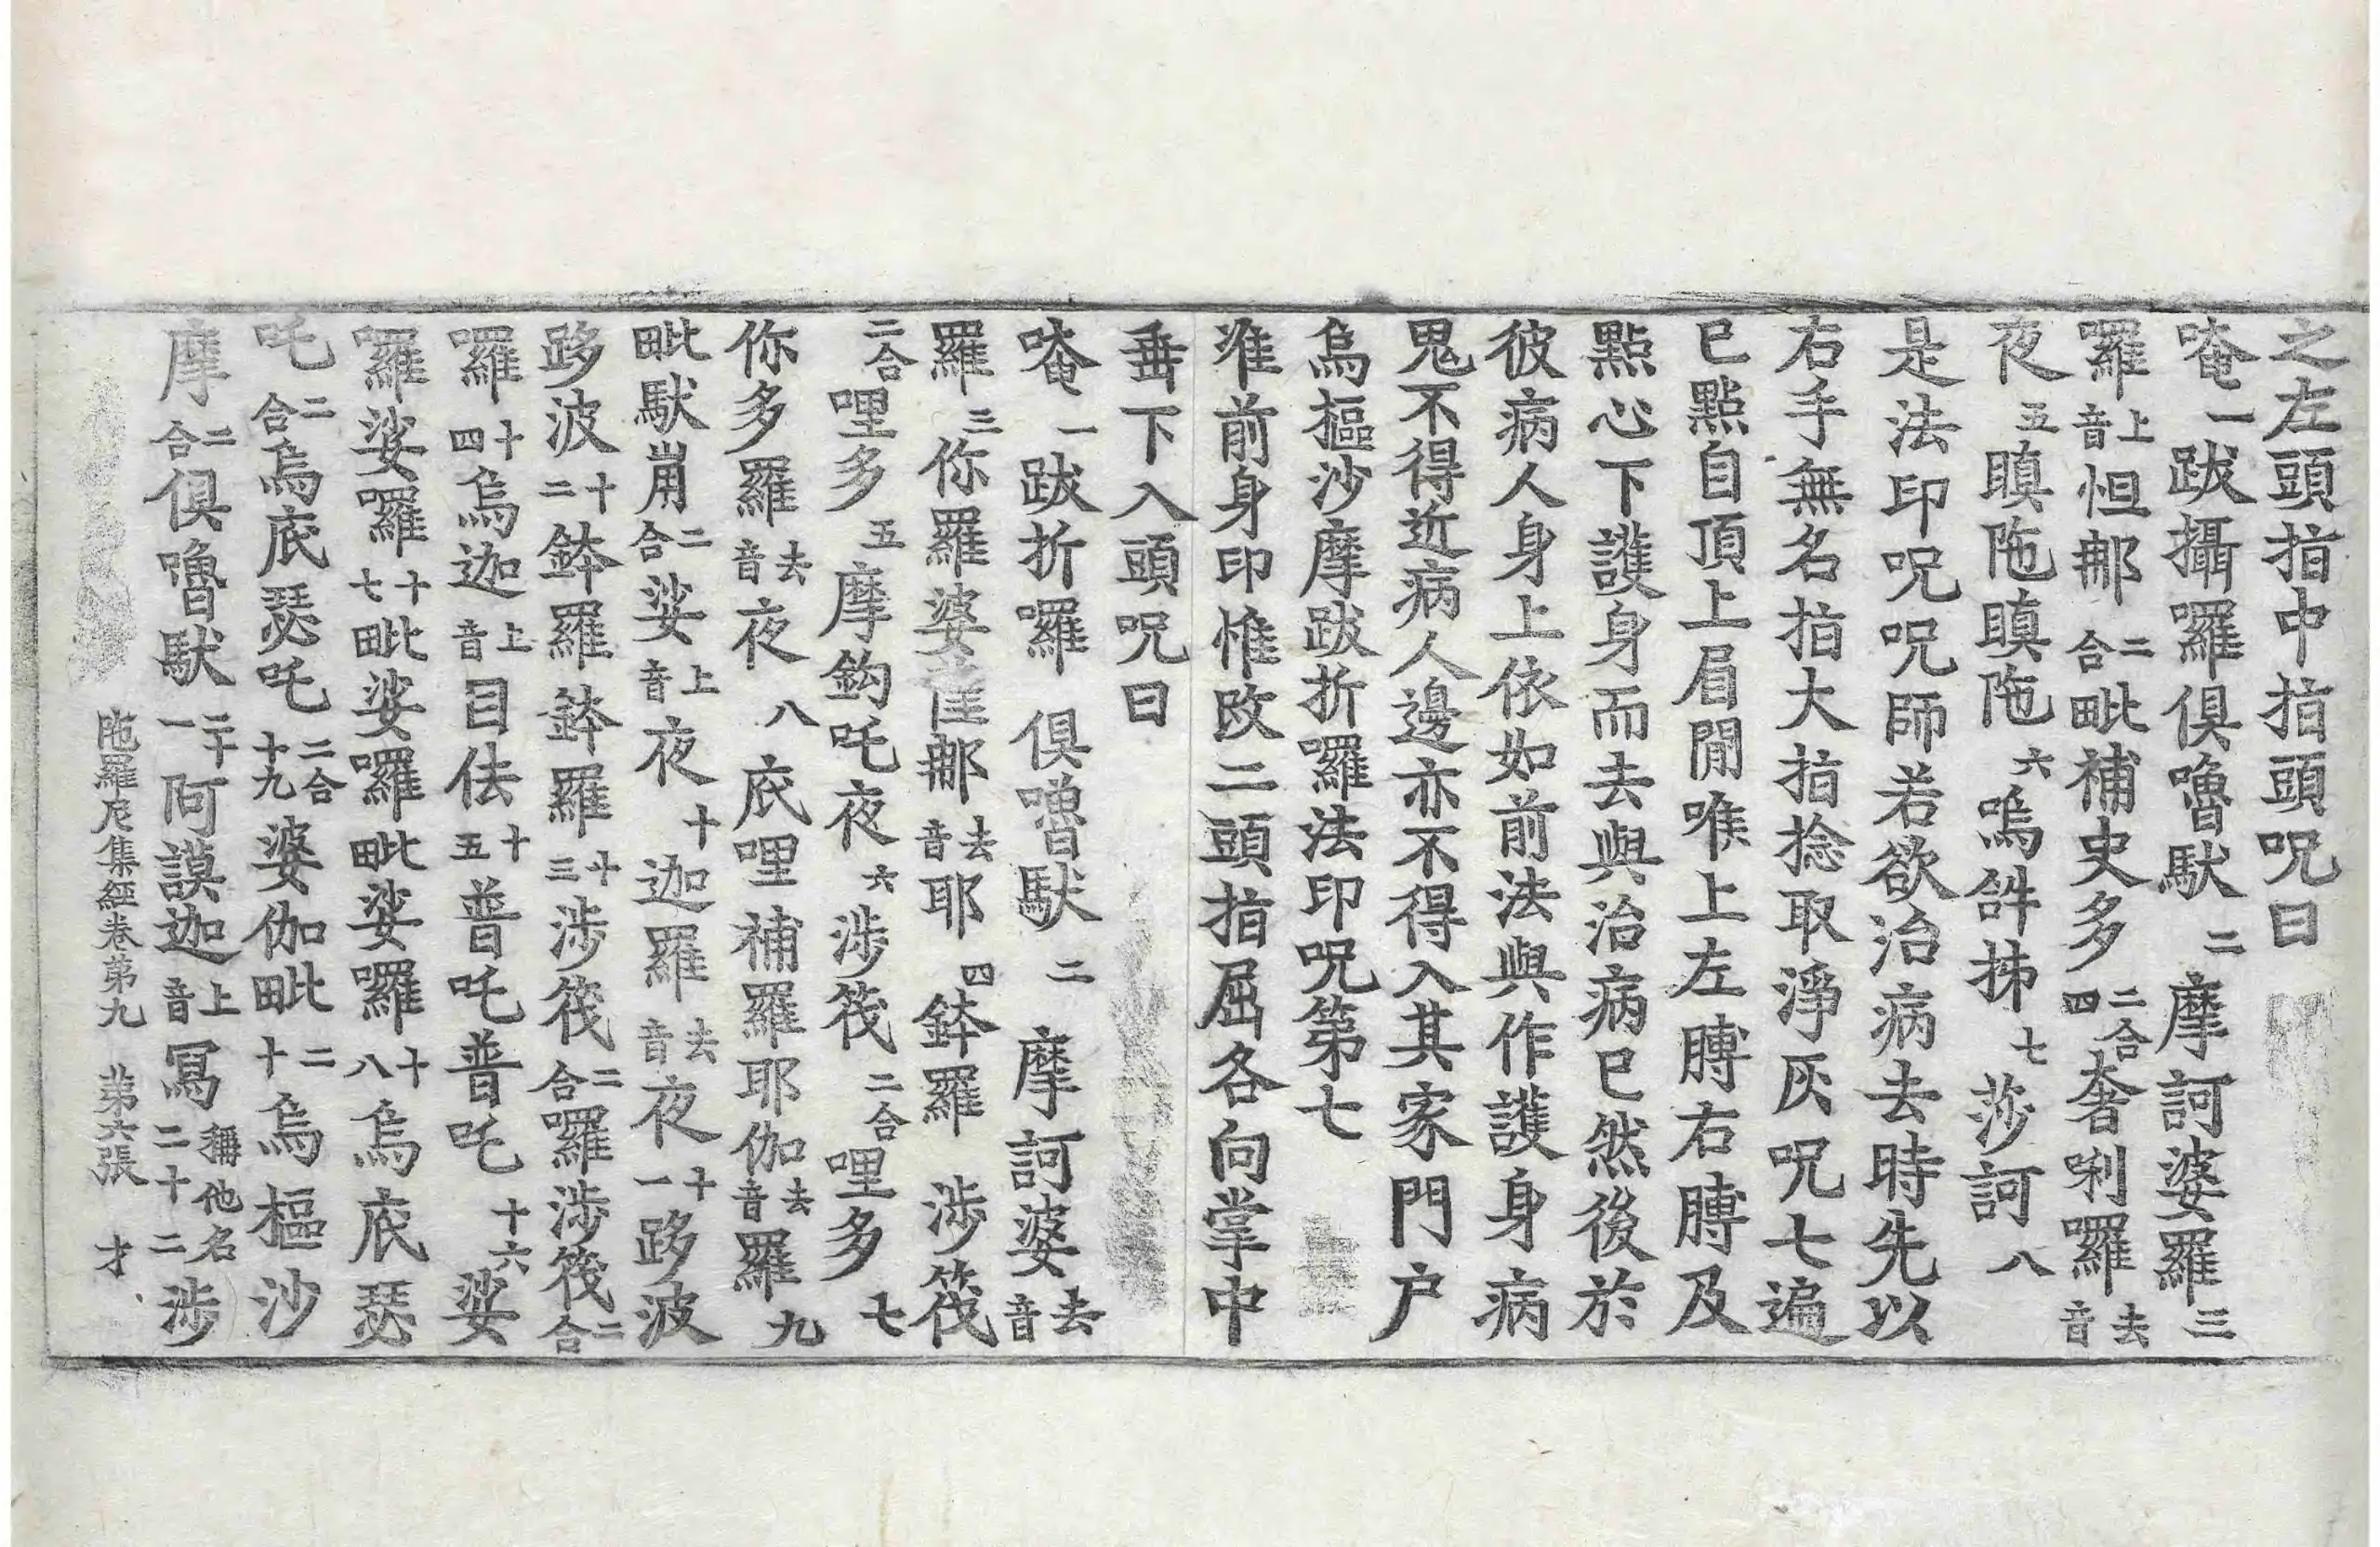 之左頭指中指頭呪曰
唵一跋攝囉俱嚕馱二摩訶婆羅三
囉上音怛郍二合毗補史多二合四奢唎羅去音
夜五瞋陁瞋陁六嗚𤙖抺七莎訶八
是法印呪呪師若欲治病去時先以
右手無名指大指捻取淨灰呪七遍
已點自頂上眉閒喉上左膊右膊及
點心下護身而去與治病已然後於
彼病人身上依如前法與作護身病
鬼不得近病人邊亦不得入其家門户
烏樞沙摩跋折囉法印呪第七
准前身印惟改二頭指屈各向掌中
垂下入頭呪曰
唵一跋折囉俱嚕馱二摩訶婆去音
羅三你羅婆郍去音耶四鉢羅涉筏
二合哩多五摩鈎吒夜六涉筏二合哩多七
你多羅去音夜八底哩補羅耶伽去音羅九
毗馱崩二合娑上音夜十迦羅去音夜十一跢波
跢波十二鉢羅鉢羅十三涉筏二合囉涉筏二合
囉十四烏迦上音目佉十五普吒普吒十六娑
囉娑囉十七毗娑囉毗娑囉十八烏底瑟
吒二合烏底瑟吒二合十九婆伽毗二十烏樞沙
摩二合俱嚕馱二十一阿謨迦上音寫稱他名二十二涉
陁羅尼集經卷第九 第六張 才